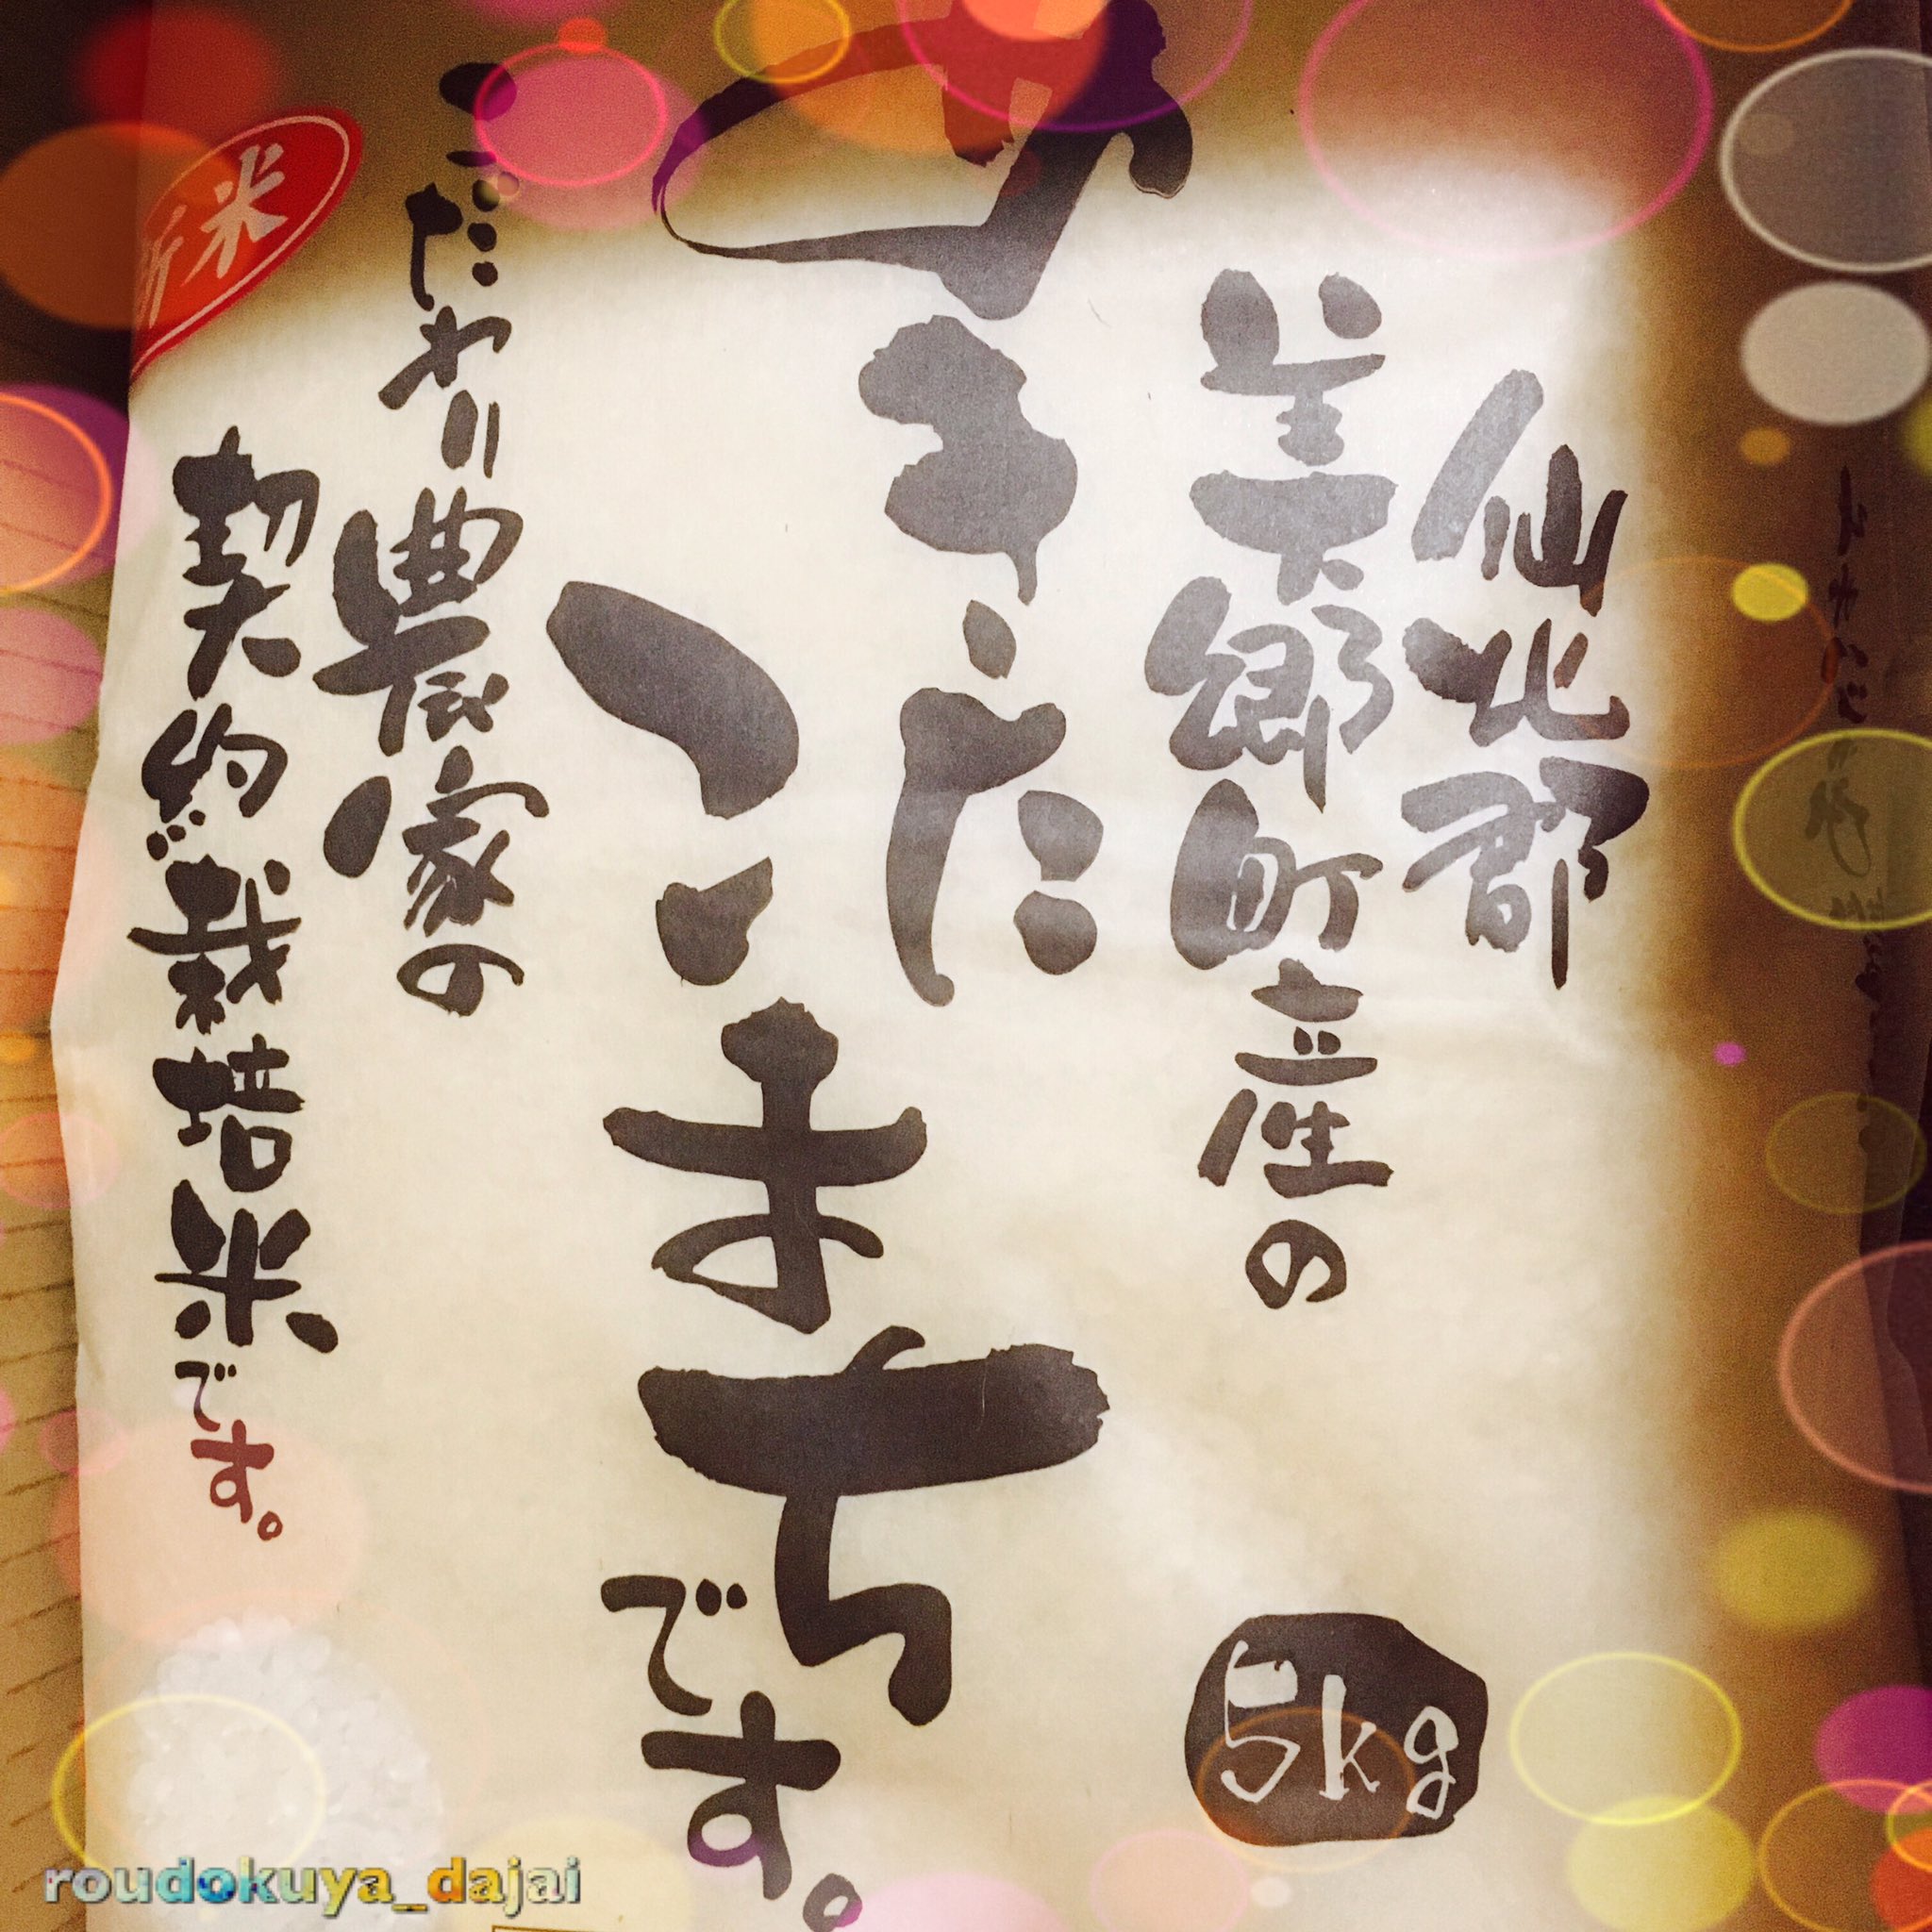 仙北郡
美郷町産の
あきたこまちです。
こだわり農家の
契約栽培米です。
新米
5kg
roudokuya_dajai